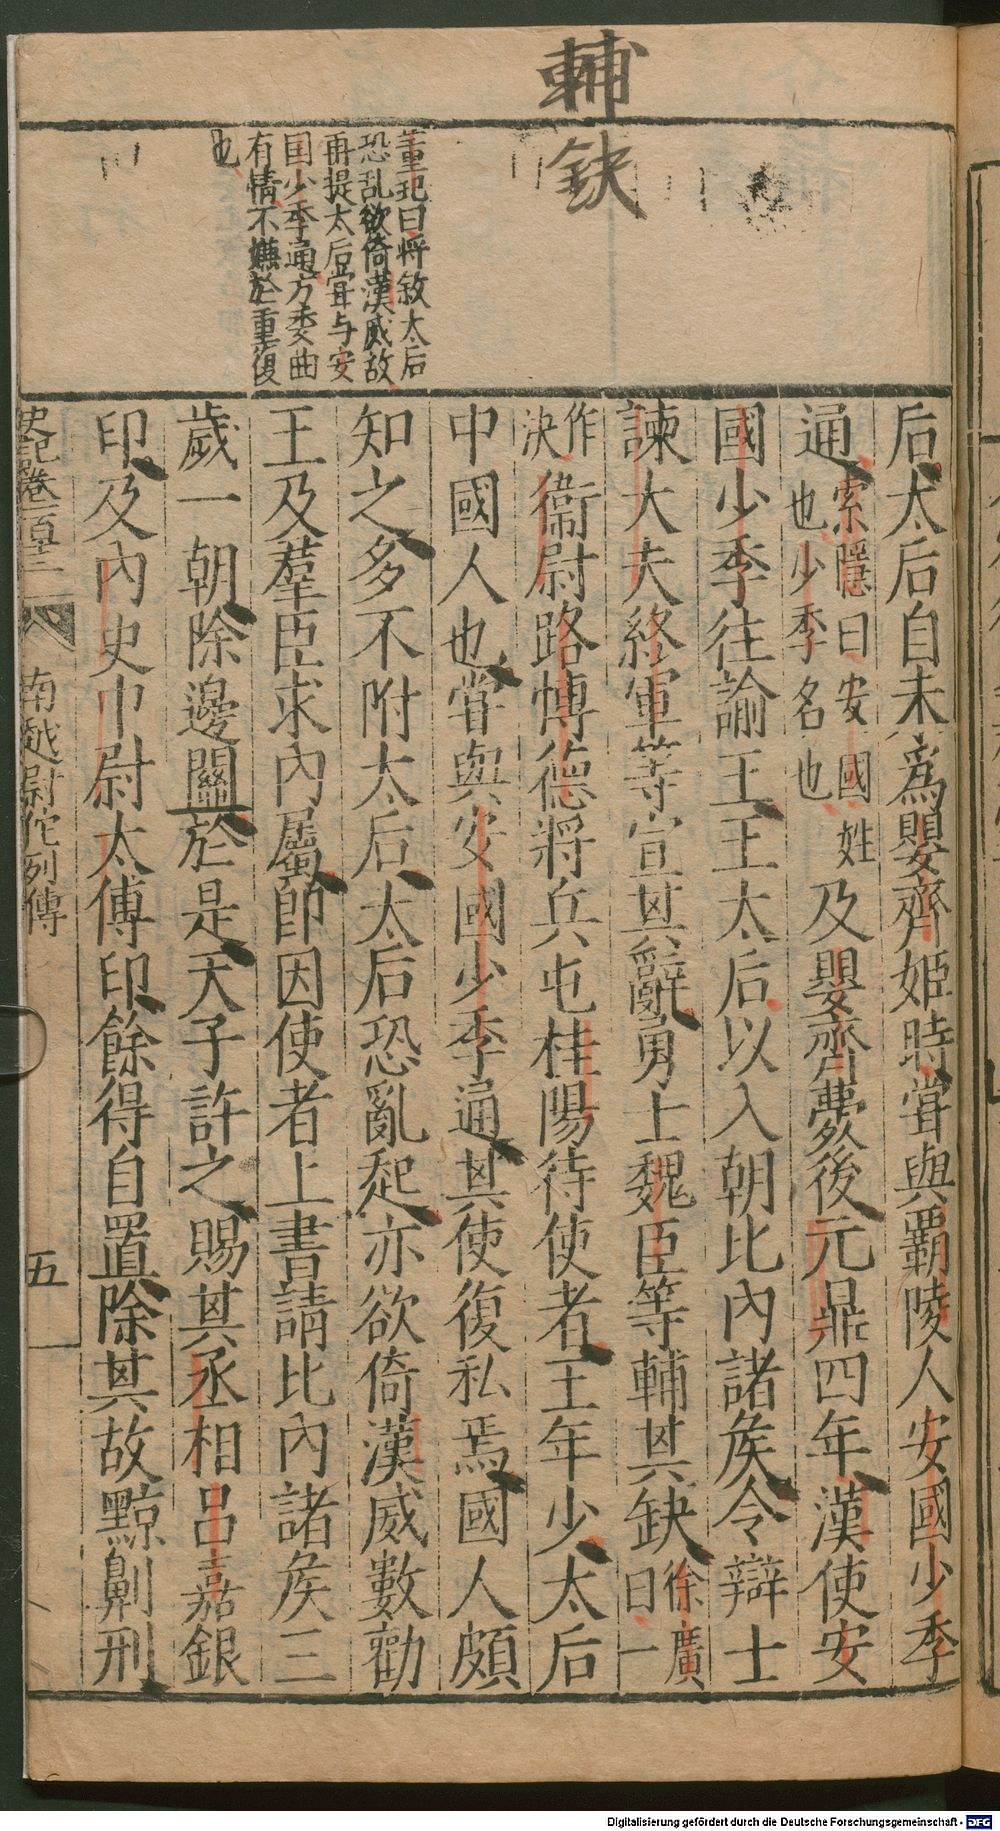 輔
缺
董玘曰將敘太后
恐乱欲倚漢威故
再提太后甞与安
国少季通方委曲
有情不嫌於重復
也
后太后自未爲嬰齊姬時甞與覇陵人安國少季
通索隱曰安國姓也少季名也及嬰齊薨後元鼎四年漢使安
國少季往諭王王太后以入朝比內諸矦令辯士
諫大夫終軍等宣其辭勇士魏臣等輔其缺徐廣曰一
作決衞尉路愽德將兵屯桂陽待使者王年少太后
中國人也甞與安國少季通其使復私焉國人頗
知之多不附太后太后恐亂起亦欲倚漢威數勸
王及羣臣求內屬卽因使者上書請比內諸矦三
歲一朝除邊關於是天子許之賜其丞相呂嘉銀
印及內史中尉太傅印餘得自置除其故黥劓刑
史記卷一百十三
南越尉佗列傳
五
Digitalisierung gefördert durch die Deutsche Forschungsgemeinschaft - DFG